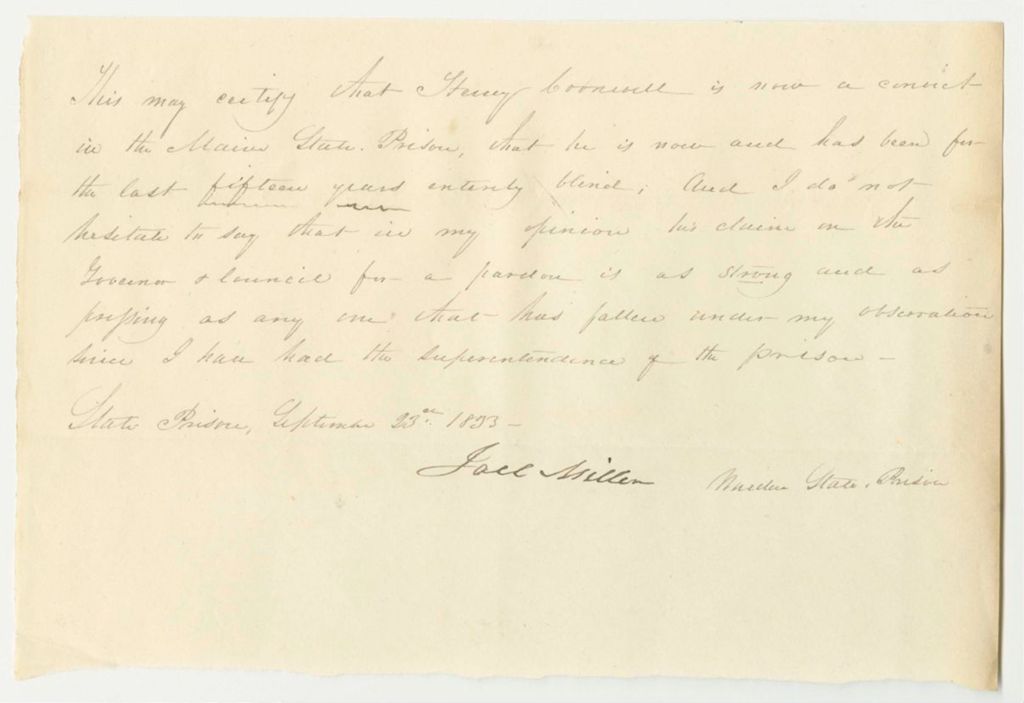 This may certify that Henry Cornwell is now a convict
in the Maine State Prison, that he is now and has been for
the last fifteen years entirely blind; And I do not
hesitate to say that in my opinion his claim on the
Governor & Council for a pardon is as strong and as
pressing as any one that has fallen under my observation
since I have had the superintendence of the prison –
State Prison, September 23rd. 1833 –
Joel Miller Warden State Prison